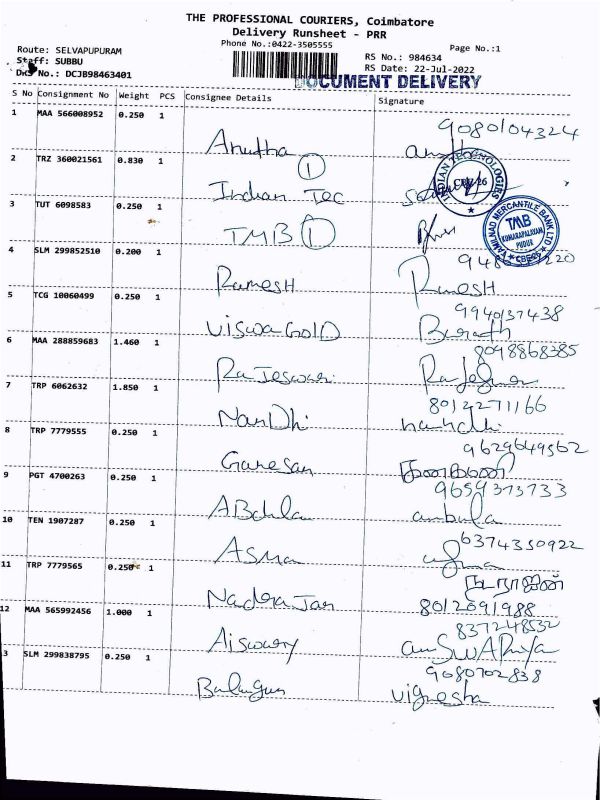 THE PROFESSIONAL COURIERS, Coimbatore
Delivery Runsheet - PRR
Phone No.:0422-3505555
Page No.:1
Route: SELVAPUPURAM
Staff: SUBBU
DRS No.: DCJB98463401
RS No.: 984634
RS Date: 22-Jul-2022
DOCUMENT DELIVERY
S No Consignment No Weight PCS Consignee Details Signature
1 MAA 566008952 0.250 1
9080104324
Anutha
2 TRZ 360021561 0.830 1
1
Indian Tec
3 TUT 6098583 0.250 1
TMB 1
TAMILNAD MERCANTILE BANK LTD
TMB
KUMARAPALAYAM
PUDUR
CBE
4 SLM 299852510 0.200 1
Ramesh Ramesh
5 TCG 10060499 0.250 1
9940137438
Viswa Gold Barath
6 MAA 288859683 1.460 1
8098868385
Rajeswari
7 TRP 6062632 1.850 1
8012271166
NanDhi nandhi
8 TRP 7779555 0.250 1
9629649562
Ganesan
9 PGT 4700263 0.250 1
9659373733
ambula
10 TEN 1907287 0.250 1
6374350922
Asma
11 TRP 7779565 0.250 1
நடராஜன்
NadraJan 8012091988
12 MAA 565992456 1.000 1
837248532
Aiswary
3 SLM 299838795 0.250 1
9080702838
vignesha